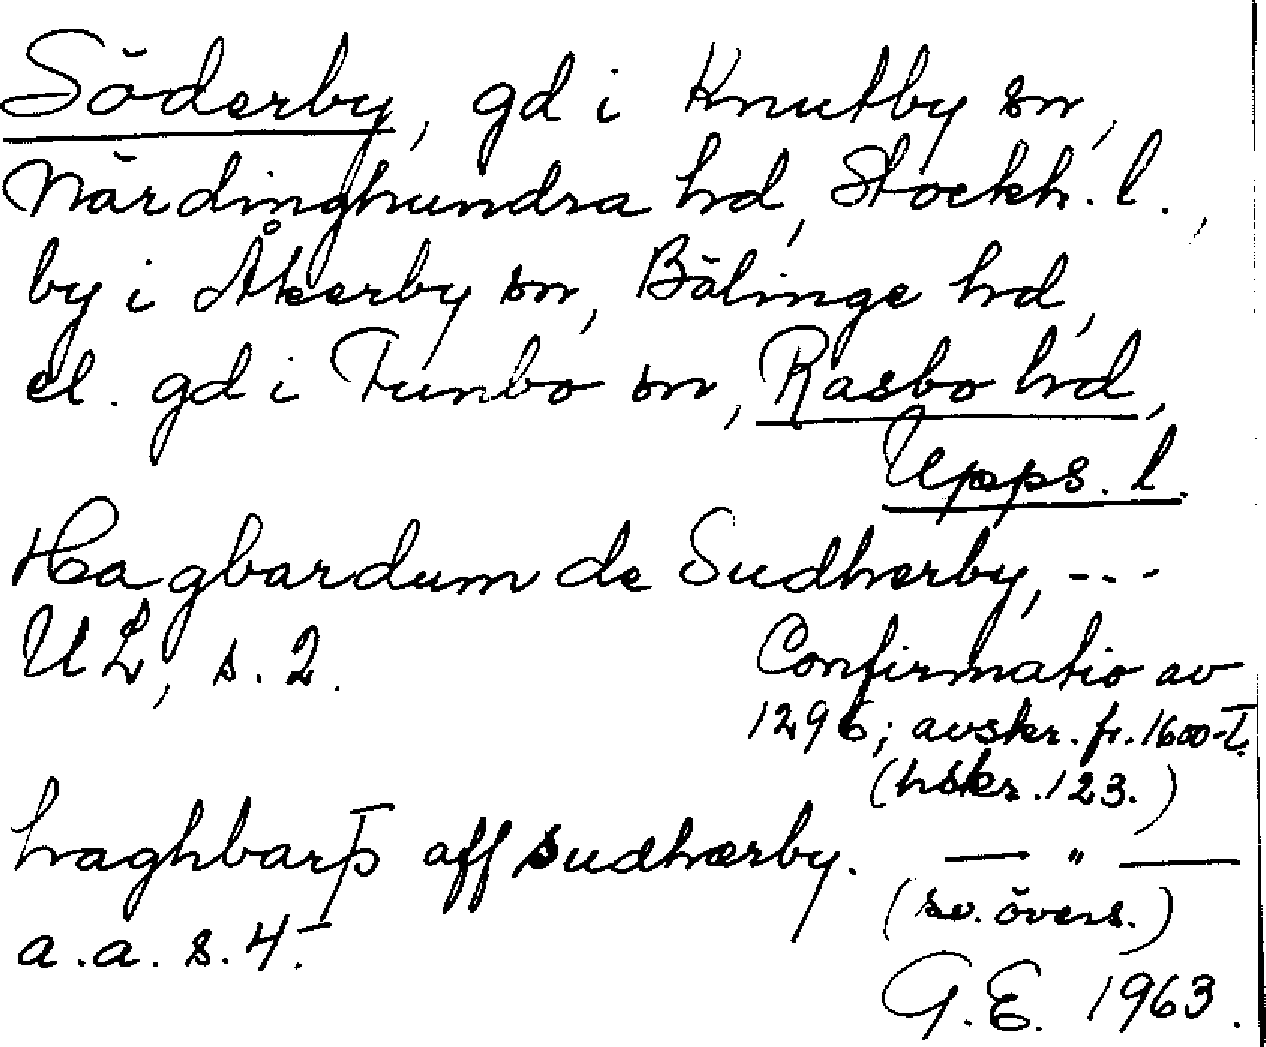 Söderby, gd i Knutby sn,
Närdinghundra hd, Stockh. l.,
by i Åkerby sn, Bälinge hd,
el. gd i Funbo sn, Rasbo hd,
Upps. l.
Hagbardum de Sudherby, ---
UL, s. 2.
Confirmatio av
1296; avskr. fr. 1600-t.
(hskr. 123.)
haghbarþ aff sudhærby. — " —
(sv. övers.)
a.a. s. 4.
G.E. 1963.